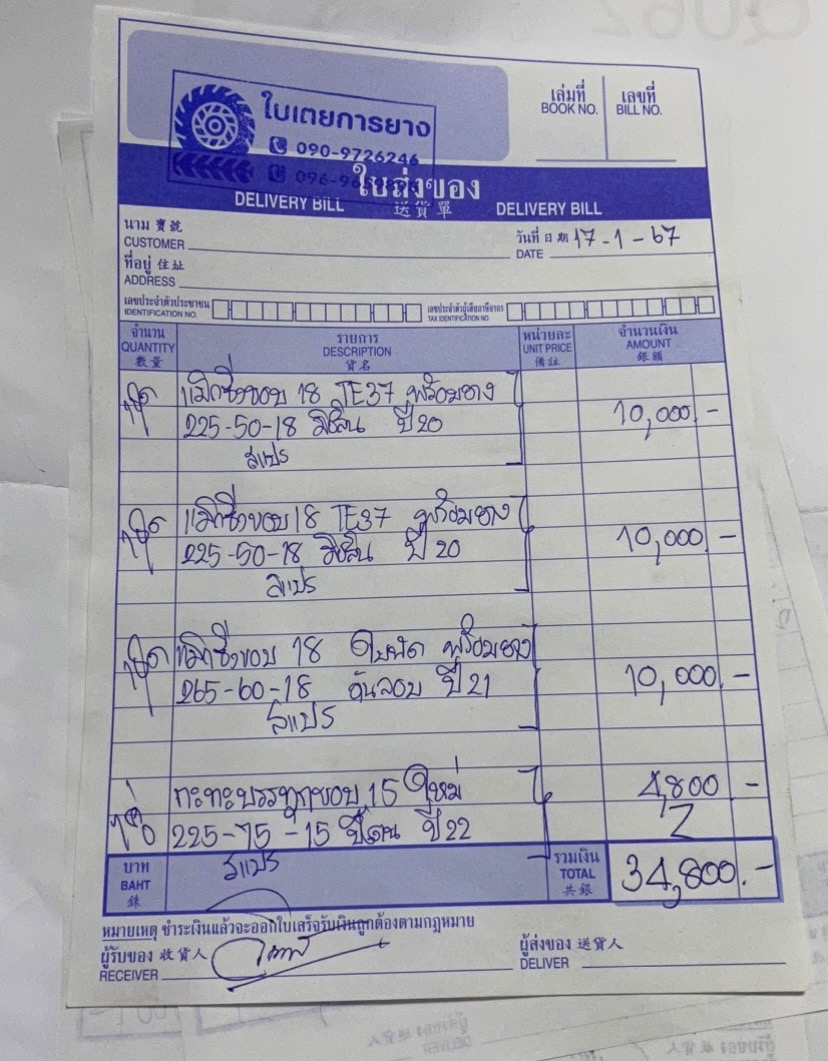 ใบเตยการยาง
090-9726246
ใบส่งของ
DELIVERY BILL 送貨單 DELIVERY BILL
เล่มที่ เลขที่
BOOK NO. BILL NO.
นาม 寶號
CUSTOMER
วันที่ 日期 17-1-67
DATE
ที่อยู่ 住址
ADDRESS
เลขประจำตัวประชาชน เลขประจำตัวผู้เสียภาษีอากร
IDENTIFICATION NO. TAX IDENTIFICATION NO.
จำนวน รายการ หน่วยละ จำนวนเงิน
QUANTITY DESCRIPTION UNIT PRICE AMOUNT
數量 貨名 備註 銀額
แม็กซิ่งขอบ 18 TE37 พร้อมยาง
225-50-18 มิชลิน ปี 20 10,000.-
สแปร์
แม็กซิ่งขอบ 18 TE37 พร้อมยาง
225-50-18 มิชลิน ปี 20 10,000 -
สแปร์
แม็กซิ่งขอบ 18 ใบพัด พร้อมยาง
265-60-18 ดันลอป ปี 21 10,000 -
สแปร์
กะทะบรรทุกขอบ 15 ใหม่ 4,800 -
225-75-15 ปี 22
สแปร์
บาท รวมเงิน
BAHT TOTAL 34,800.-
銖 共銀
หมายเหตุ ชำระเงินแล้วจะออกใบเสร็จรับเงินถูกต้องตามกฎหมาย
ผู้รับของ 收貨人 ผู้ส่งของ 送貨人
RECEIVER DELIVER